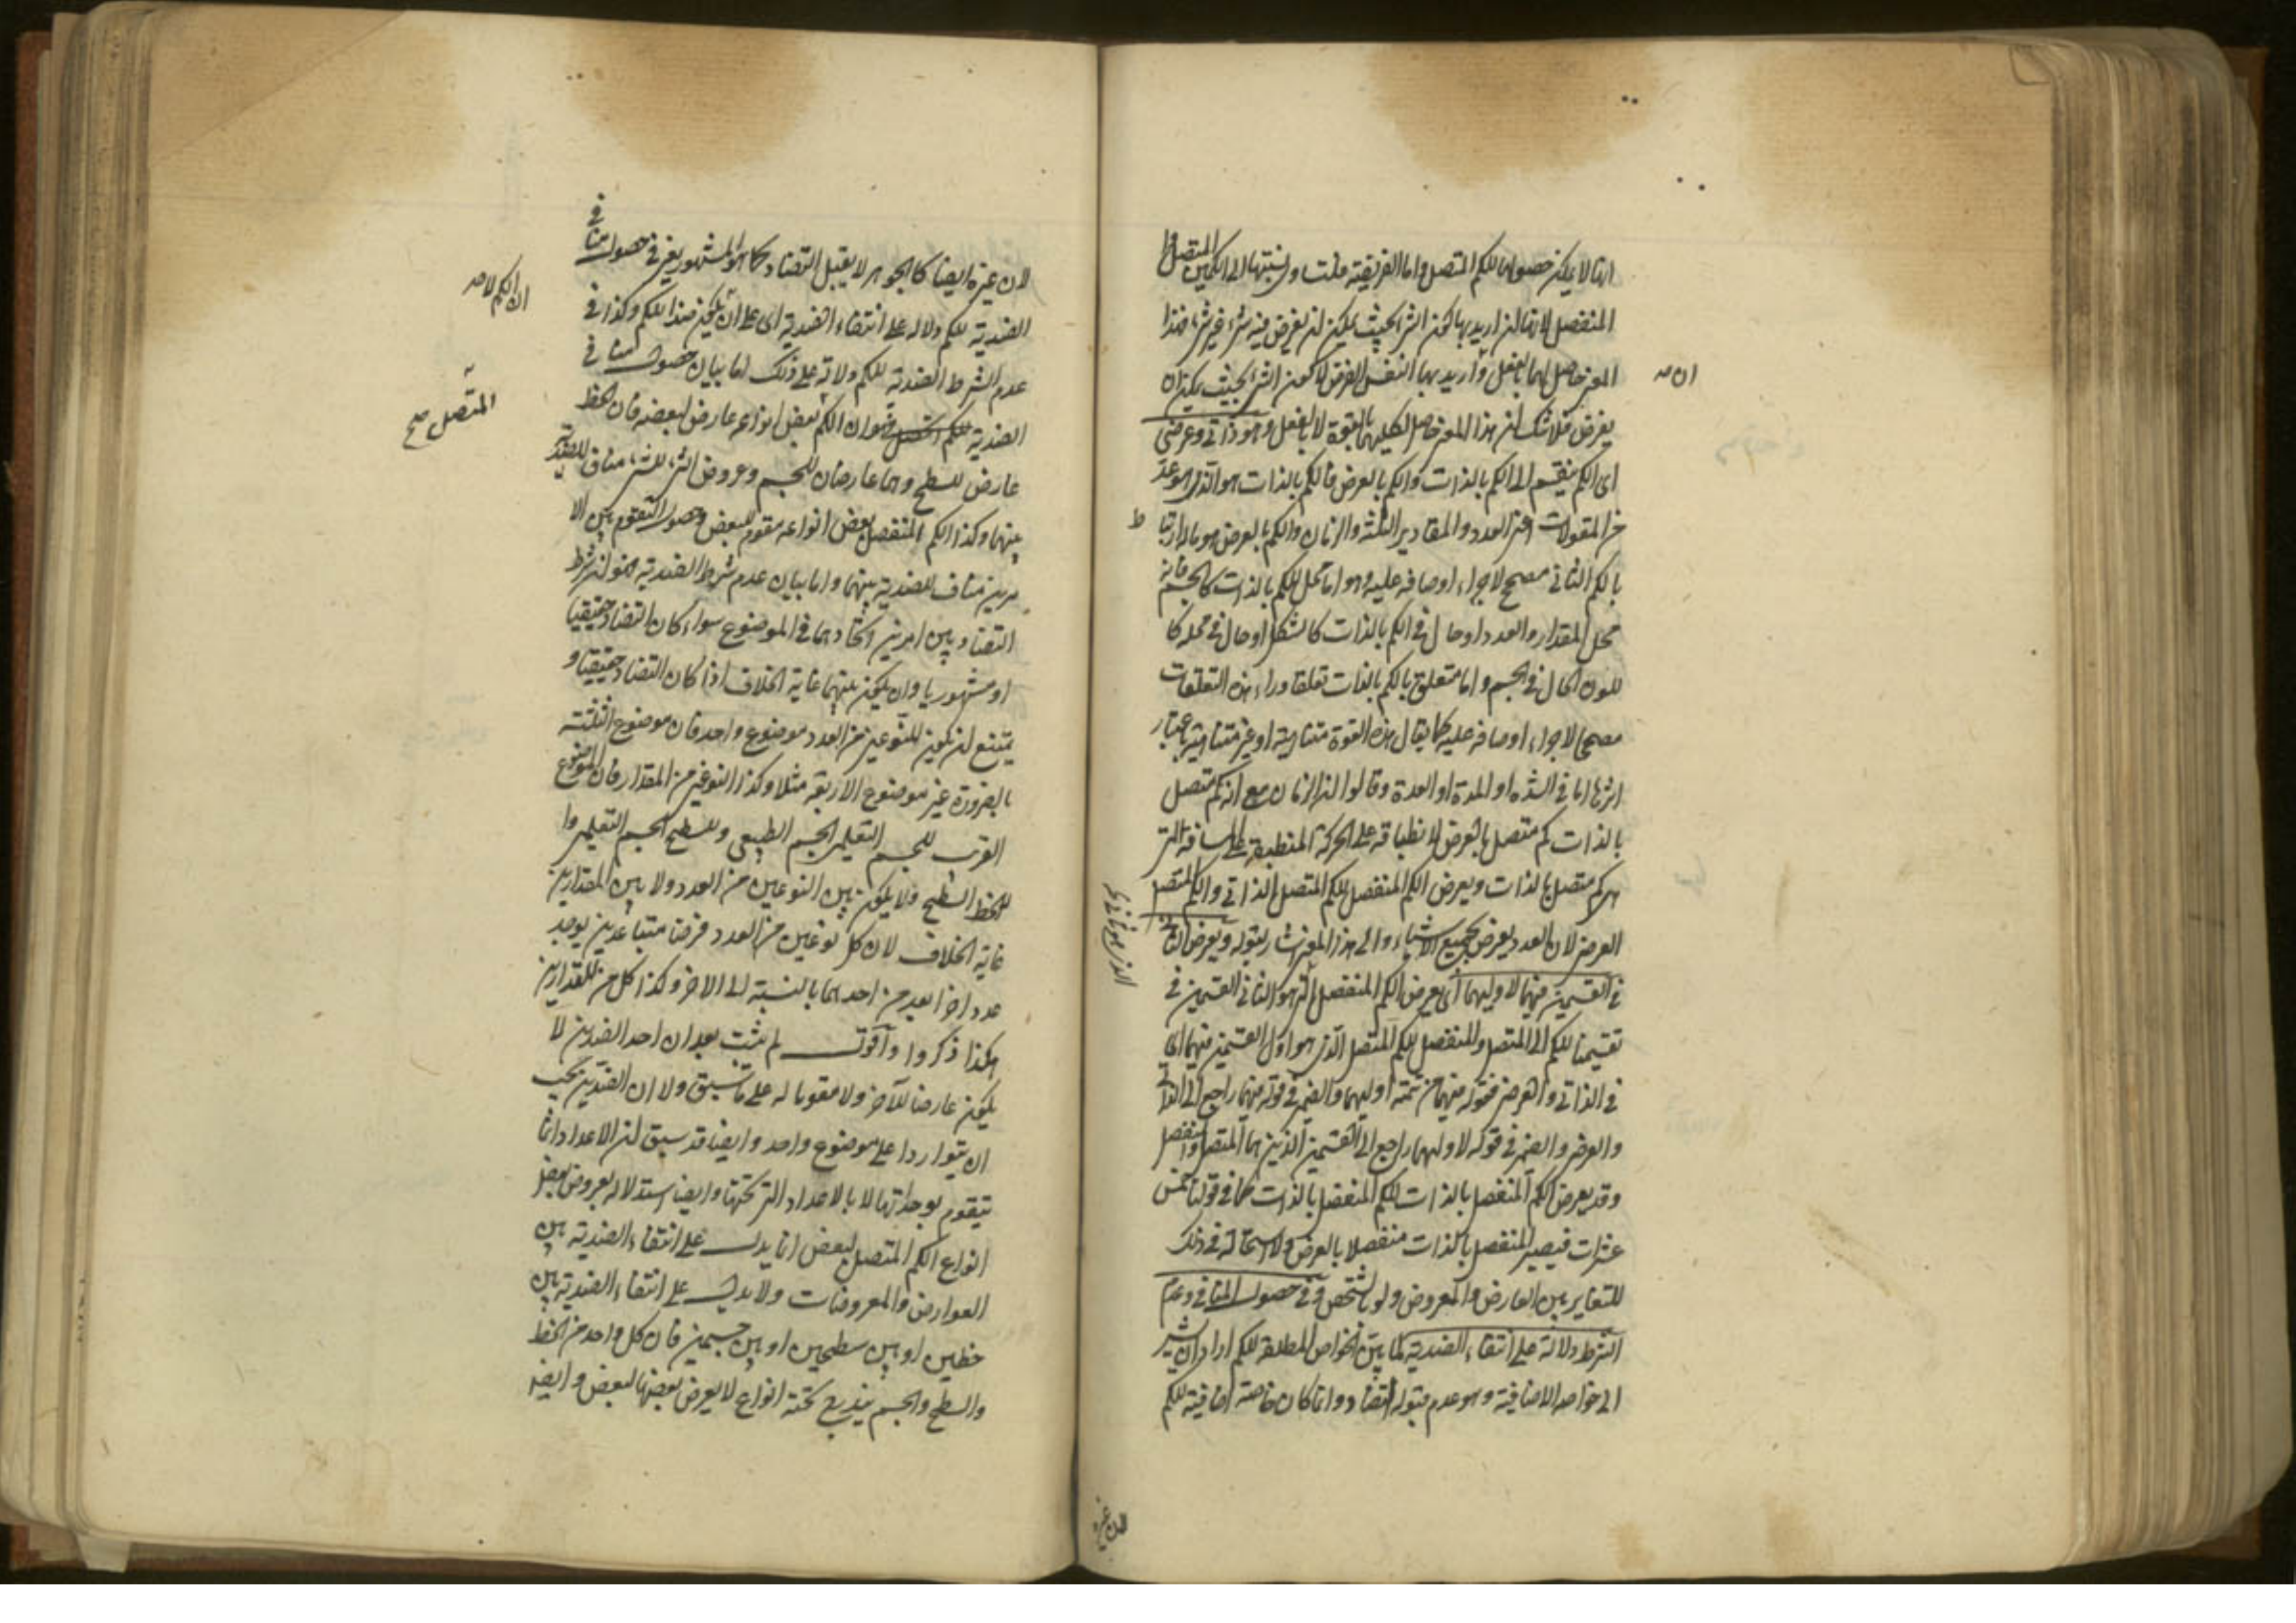 انما لا يمكن حصولها للكم المتصل واما القريبة فلتساوى نسبتها الى الكمين المتصل و
المنفصل لانها ان اريد بها كون الشئ بحيث يمكن ان يفرض فيه شئ غير شئ فهذا
المعنى حاصل لهما بالفعل وان اريد بها النفس الفرض لا كون الشئ بحيث يمكن ان
يفرض فلا شك ان هذا المعنى حاصل لكليهما بالقوة لا بالفعل وهو ذاتى وعرضى
اى الكم ينقسم الى الكم بالذات والكم بالعرض فالكم بالذات هو الذى هو عد
من المقولات اعنى العدد والمقادير الثلثة والزمان والكم بالعرض هو ماله ارتباط
بالكم الذاتى مصحح لاجراء اوصافه عليه وهو اما محل للكم بالذات كالجسم فانه
محل المقدار والعدد او حال فى الكم بالذات كالشكل او حال فى محله كا
للون الحال فى الجسم واما متعلق بالكم بالذات تعلقا وراء هذه التعلقات
مصححا لاجراء اوصافه عليه كما يقال هذه القوة متناهية او غير متناهية باعتبار
اثرها اما فى الشدة او المدة او العدة وقالوا ان الزمان مع انه كم متصل
بالذات كم متصل بالعرض لانطباقه على الحركة المنطبقة على المسافة التى
هى كم متصل بالذات ويعرض الكم المنفصل للكم المتصل الذاتى والكم المتصل
العرضى لان العدد يعرض لجميع الاشياء والى هذا المعنى اشار بقوله ويعرض ثانى
فى القسمين فيهما لاوليهما اى يعرض الكم المنفصل الذى هو الثانى القسمين فى
تقسيمنا للكم الى المتصل والمنفصل للكم المتصل الذى هو اول القسمين فيهما اى
فى الذاتى والعرضى فقوله فيهما من تتمة اوليهما والضمير فى قوله فيهما راجع الى الذاتى
والعرضى والضمير فى قوله لاوليهما راجع الى القسمين الذين هما المتصل والمنفصل
وقد يعرض الكم المنفصل بالذات للكم المنفصل بالذات كما فى قولنا خمس
عشرات فيصير المنفصل بالذات منفصلا بالعرض ولا استحالة فى ذلك
للتغاير بين العارض والمعروض ولو بالشخص وفى حصول المنافى وعدم
الشرط دلالة على انتفاء الضدية لما بين الخواص المطلقة للكم اراد ان يشير
الى خواصه الاضافية وهو عدم قبوله التضاد وانما كان خاصة اضافية للكم
ان
ط
لان غيره
لان غيره ايضا كالجوهر لا يقبل التضاد كما هو المشهور يعنى فى حصول منافى
الضدية للكم دلالة على انتفاء الضدية اى على ان يكون ضدا للكم وكذا فى
عدم الشرط الضدية للكم دلالة على ذلك اما بيان حصول المنافى
الضدية للكم المتصل فهو ان الكم بعض انواعه عارض لبعضه فان الخط
عارض للسطح وهما عارضان للجسم وعروض الشئ للشئ مناف للضدية
بينهما وكذا الكم المنفصل بعض انواعه مقوم للبعض وحصول التقوم بين الا
مرين مناف للضدية بينهما واما بيان عدم شرط الضدية فهو ان شرط
التضاد بين امرين اتحادهما فى الموضوع سواء كان التضاد حقيقيا
او مشهوريا وان يكون بينهما غاية الخلاف اذا كان التضاد حقيقيا و
يمتنع ان يكون للنوعين من العدد موضوع واحد فان موضوع الثلثة
بالضرورة غير موضوع الاربعة مثلا وكذا النوعين من المقدار فان الموضوع
القريب للجسم التعليمى الجسم الطبيعى وللسطح الجسم التعليمى و
للخط السطح ولا يكون بين النوعين من العدد ولا بين المقدارين
غاية الخلاف لان كل نوعين من العدد فرضنا متباعدين يوجد
عدد اخر ابعد من احدهما بالنسبة الى الاخر وكذا كل من المقدارين
هكذا ذكروا واقول لم يثبت بعد ان احد الضدين لا
يكون عارضا للآخر ولا مقوما له على ما سبق ولا ان الضدين يجب
ان يتواردا على موضوع واحد وايضا قد سبق ان الاعداد انما
تتقوم بوحداتها لا بالاعداد التى تحتها وايضا استدلاله بعروض بعض
انواع الكم المتصل لبعض انما يدل على انتفاء الضدية بين
العوارض والمعروضات ولا يدل على انتفاء الضدية بين
خطين او بين سطحين او بين جسمين فان كل واحد من الخط
والسطح والجسم يندرج تحته انواع لا يعرض بعضها لبعض وايضا
ان الكم لا
المتصل صح